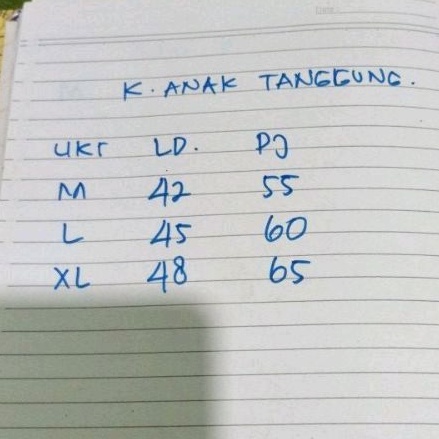 K. ANAK TANGGUNG.
UKr LD. PJ
M 42 55
L 45 60
XL 48 65